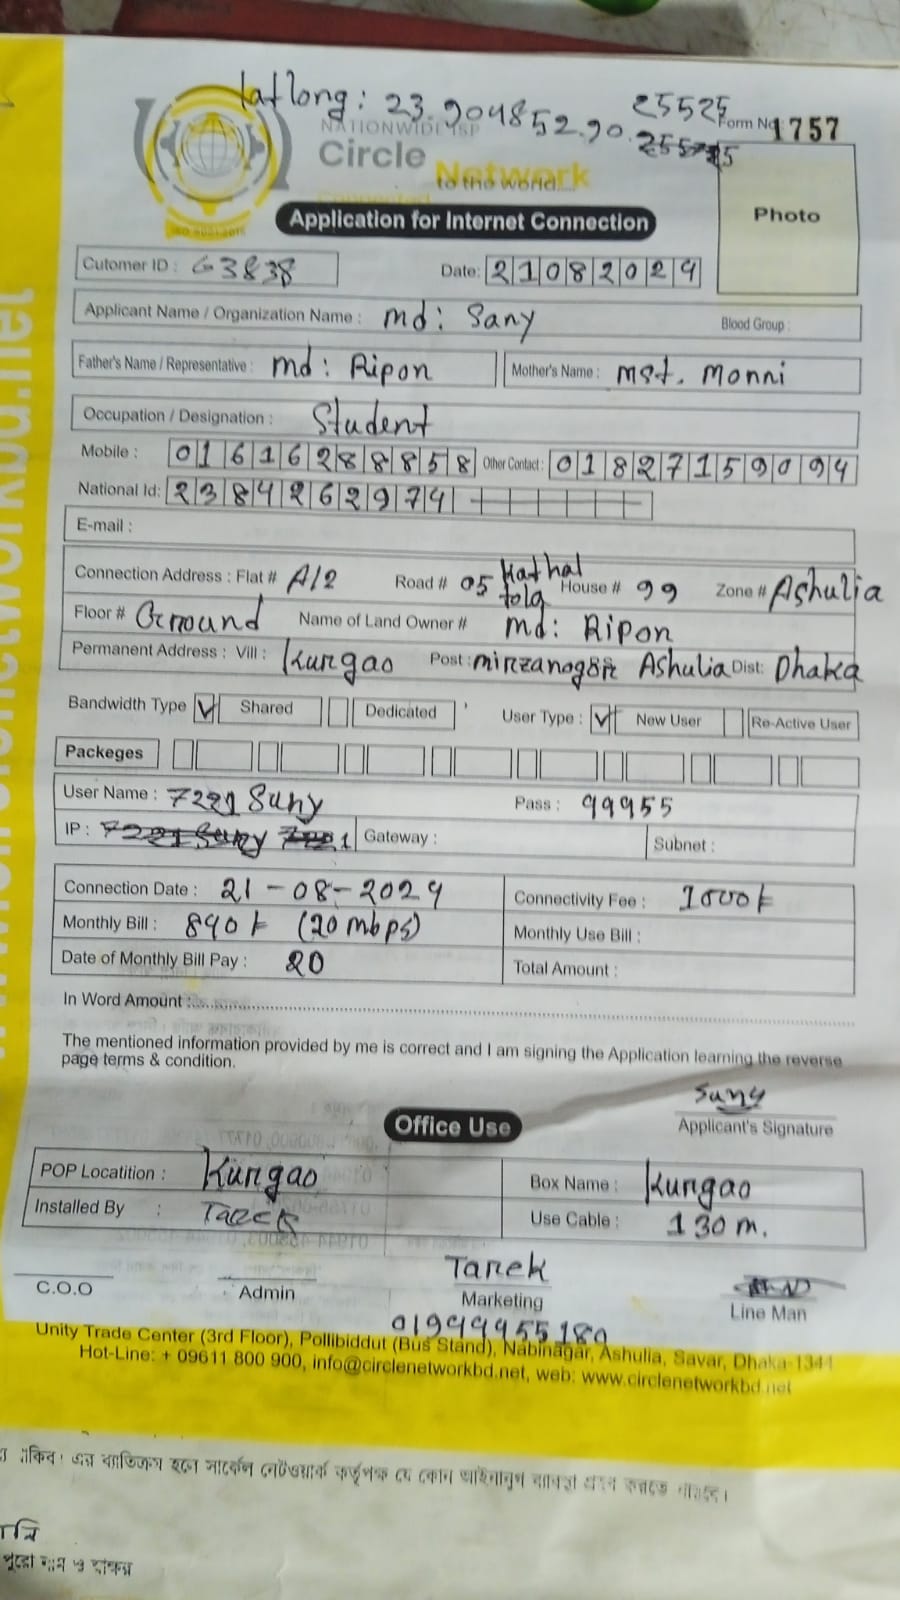 latlong: 23.904852.90.25525
NATIONWIDE ISP
Form No 1757
Circle Network
to the world...
Photo
Application for Internet Connection
Cutomer ID : G3838 Date: 21082024
Applicant Name / Organization Name : md: Sany Blood Group :
Father's Name / Representative : md: Ripon Mother's Name : mst. Monni
Occupation / Designation : Student
Mobile : 01616288858 Other Contact : 01827159094
National Id: 2384262974
E-mail :
Connection Address : Flat # A/2 Road # 05 Kathal tola House # 99 Zone # Ashulia
Floor # Ground Name of Land Owner # md: Ripon
Permanent Address : Vill : Kungao Post : mirzanagar Ashulia Dist: Dhaka
Bandwidth Type Shared Dedicated User Type : New User Re-Active User
Packeges
User Name : 7221 Suny Pass : 99955
IP : Gateway : Subnet :
Connection Date : 21-08-2024 Connectivity Fee : 1000t
Monthly Bill : 840t (20 mbps) Monthly Use Bill :
Date of Monthly Bill Pay : 20 Total Amount :
In Word Amount :
The mentioned information provided by me is correct and I am signing the Application learning the reverse
page terms & condition.
Sany
Applicant's Signature
Office Use
POP Locatition : Kungao Box Name : Kungao
Installed By : Tarek Use Cable : 130 m.
C.O.O Admin Tarek Marketing Line Man
01944955180
Unity Trade Center (3rd Floor), Pollibiddut (Bus Stand), Nabinagar, Ashulia, Savar, Dhaka-1344
Hot-Line: + 09611 800 900, info@circlenetworkbd.net, web: www.circlenetworkbd.net
থাকিব। এর ব্যতিক্রম হলে সার্কেল নেটওয়ার্ক কর্তৃপক্ষ যে কোন আইনানুগ ব্যবস্থা গ্রহণ করতে পারবে।
পুরো নাম ও স্বাক্ষর